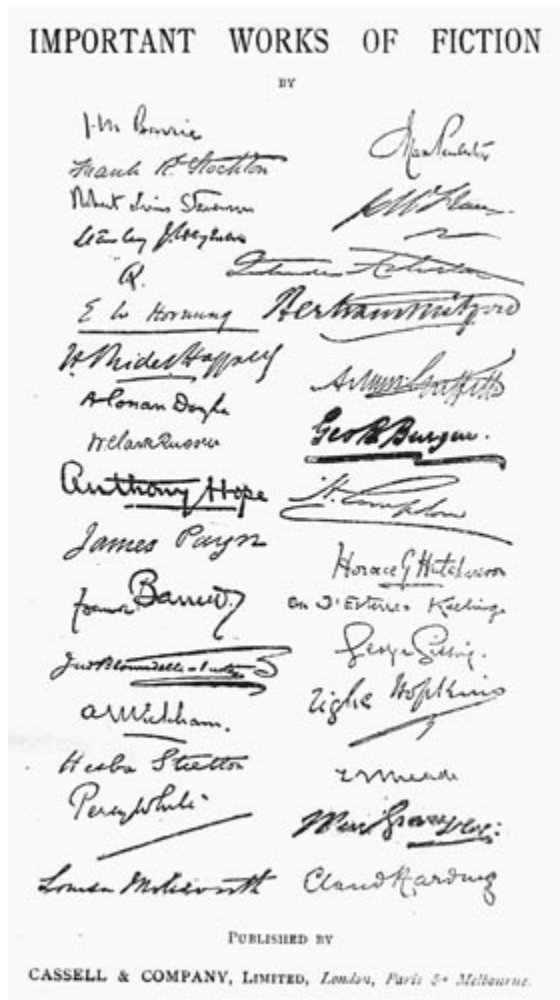 IMPORTANT WORKS OF FICTION
BY
J. M. Barrie
Frank R. Stockton
Robert Louis Stevenson
Stanley J. Weyman
Q.
E W Hornung
H Rider Haggard
A Conan Doyle
W. Clark Russell
Anthony Hope
James Payn
Frank Barrett
Jno Bloundelle-Burton
A Wickham.
Hesba Stretton
Percy White
Louisa Molesworth
Max Pemberton
Bertram Mitford
Arthur Griffiths
Geo R Burgin.
Horace G Hutchinson
D'Esterre Keeling
George Gissing.
Tighe Hopkins
Meade
Claud Harding
PUBLISHED BY
CASSELL & COMPANY, LIMITED, London, Paris & Melbourne.